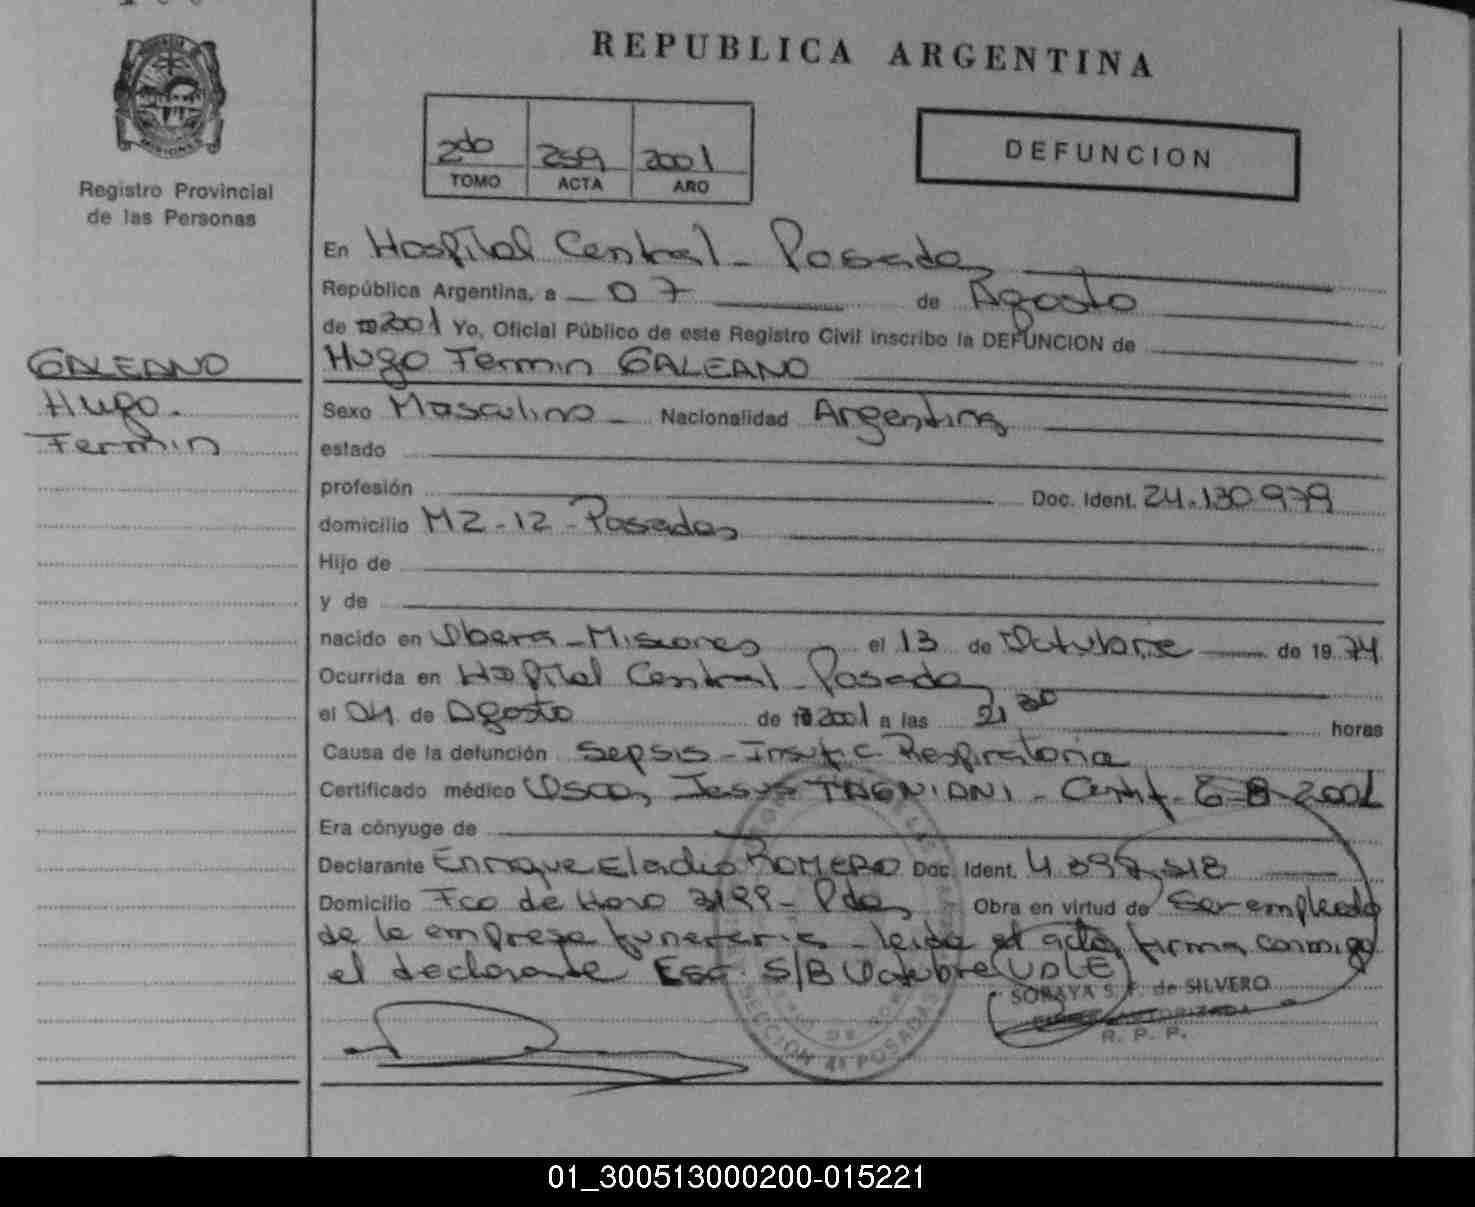 REPUBLICA ARGENTINA
MISIONES
Registro Provincial
de las Personas
2do 259 2001
TOMO ACTA AÑO
DEFUNCION
En Hospital Central - Posadas
República Argentina, a 07 de Agosto
de 2001 Yo, Oficial Público de este Registro Civil inscribo la DEFUNCION de
GALEANO
Hugo
Fermin
Hugo Fermin GALEANO
Sexo Masculino - Nacionalidad Argentina
estado
profesión Doc. Ident. 24.130.979
domicilio MZ - 12 - Posadas
Hijo de
y de
nacido en Obera - Misiones el 13 de Octubre de 1974
Ocurrida en Hospital Central - Posadas
el 04 de Agosto de 2001 a las 21 30 horas
Causa de la defunción Sepsis - Insufic Respiratoria
Certificado médico Oscar Jesus TAGNIANI - Certif. 6-8-2001
Era cónyuge de
Declarante Enrique Eladio ROMERO Doc. Ident. 4.397.518
Domicilio Fco de Haro 3199 - Pdas Obra en virtud de Ser empleado
de la empresa funeraria - leida el acta, firma conmigo
el declarante S/B Octubre VALE
SORAYA S. F. de SILVERO
AUTORIZADA
R. P. P.
SECCION 4a POSADAS
01_300513000200-015221